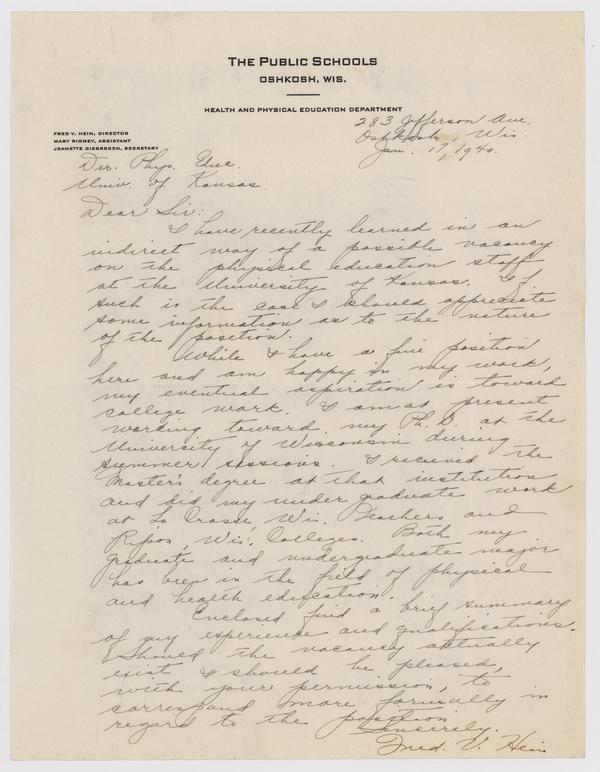 THE PUBLIC SCHOOLS
OSHKOSH, WIS.
HEALTH AND PHYSICAL EDUCATION DEPARTMENT
FRED V. HEIN, DIRECTOR
MARY RIGNEY, ASSISTANT
JEANETTE GIEBREGEN, SECRETARY
283 Jefferson Ave.
Oshkosh, Wis.
Jan. 17, 1940.
Dir. Phys. Educ.
Univ. of Kansas.
Dear Sir:
I have recently learned in an
indirect way of a possible vacancy
on the physical education staff
at the University of Kansas. If
such is the case I should appreciate
some information as to the nature
of the position.
While I have a fine position
here and am happy in my work,
my eventual aspiration is toward
college work. I am at present
working toward my Ph. D. at the
University of Wisconsin during
summer sessions. I recieved the
Master's degree at that institution
and did my under graduate work
at La Crosse, Wis. Teachers and
Ripon, Wis., Colleges. Both my
graduate and undergraduate major
has been in the field of physical
and health education.
Enclosed find a brief summary
of my experience and qualifications.
Should the vacancy actually
exist I should be pleased,
with your permission, to
correspond more formally in
regard to the position.
Sincerely,
Fred. V. Hein